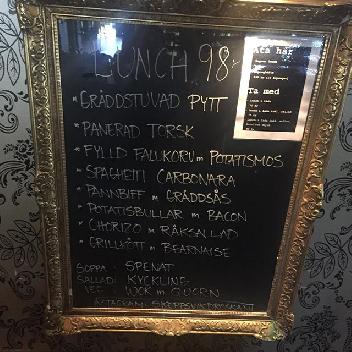 LUNCH 98:-
* GRÄDDSTUVAD PYTT
* PANERAD TORSK
* FYLLD FALUKORV m POTATISMOS
* SPAGHETTI CARBONARA
* PANNBIFF m GRÄDDSÅS
* POTATISBULLAR m BACON
* CHORIZO m RÅKSALLAD
* GRILLKÖTT m BEARNAISE
SOPPA: SPENAT
SALLAD: KYCKLING
VEG: WOK m QUORN
Äta här
Ta med